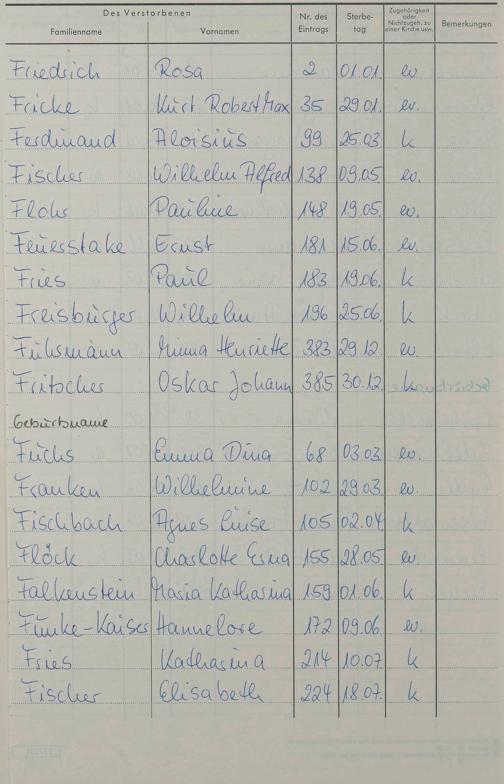 Des Verstorbenen
Familienname Vornamen Nr. des Eintrags Sterbe-tag Zugehörigkeit oder Nichtzugeh. zu einer Kirche usw. Bemerkungen
Friedrich Rosa 2 01.01. ev.
Fricke Kurt Robert Max 35 29.01. ev.
Ferdinand Aloisius 99 25.03 k
Fischer Wilhelm Alfred 138 09.05 ev.
Flohs Pauline 148 19.05. ev.
Feuerstake Ernst 181 15.06. ev.
Fries Paul 183 19.06. k
Freisbürger Wilhelm 196 25.06. k
Fühsmann Minna Henriette 383 29.12 ev.
Fritscher Oskar Johann 385 30.12. k
Geburtsname
Fuchs Emma Dina 68 03.03. ev.
Franken Wilhelmine 102 29.03. ev.
Fischbach Agnes Luise 105 02.04 k
Flöck Charlotte Erna 155 28.05. ev.
Falkenstein Maria Katharina 159 01.06. k
Funke-Kaiser Hannelore 172 09.06. ev.
Fries Katharina 214 10.07. k
Fischer Elisabeth 224 18.07. k